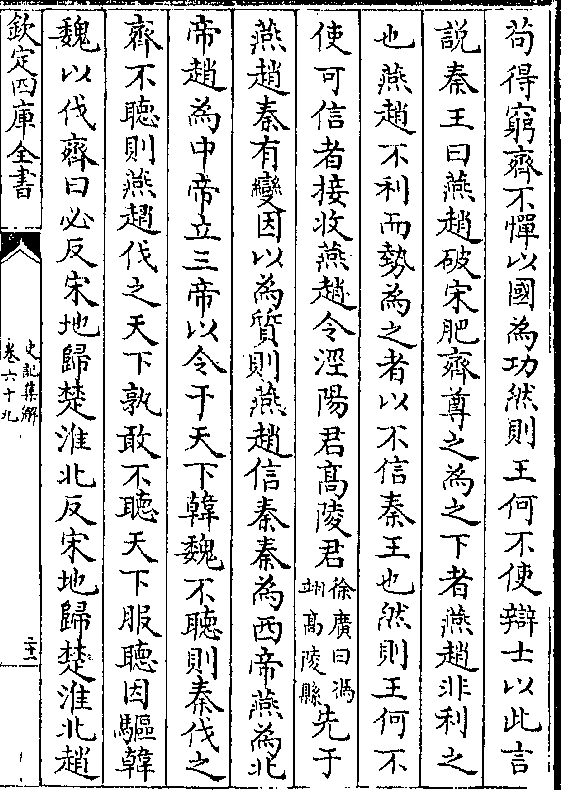 苟得窮齊不憚以國為功然則王何不使辯士以此言
說秦王曰燕趙破宋肥齊尊之為之下者燕趙非利之
也燕趙不利而勢為之者以不信秦王也然則王何不
使可信者接收燕趙令涇陽君髙陵君徐廣曰馮翊髙陵縣先于
燕趙秦有變因以為質則燕趙信秦秦為西帝燕為北
帝趙為中帝立三帝以令于天下韓魏不聽則秦伐之
齊不聽則燕趙伐之天下孰敢不聽天下服聽因驅韓
魏以伐齊曰必反宋地歸楚淮北反宋地歸楚淮北趙
欽定四庫全書
史記集解
卷六十九